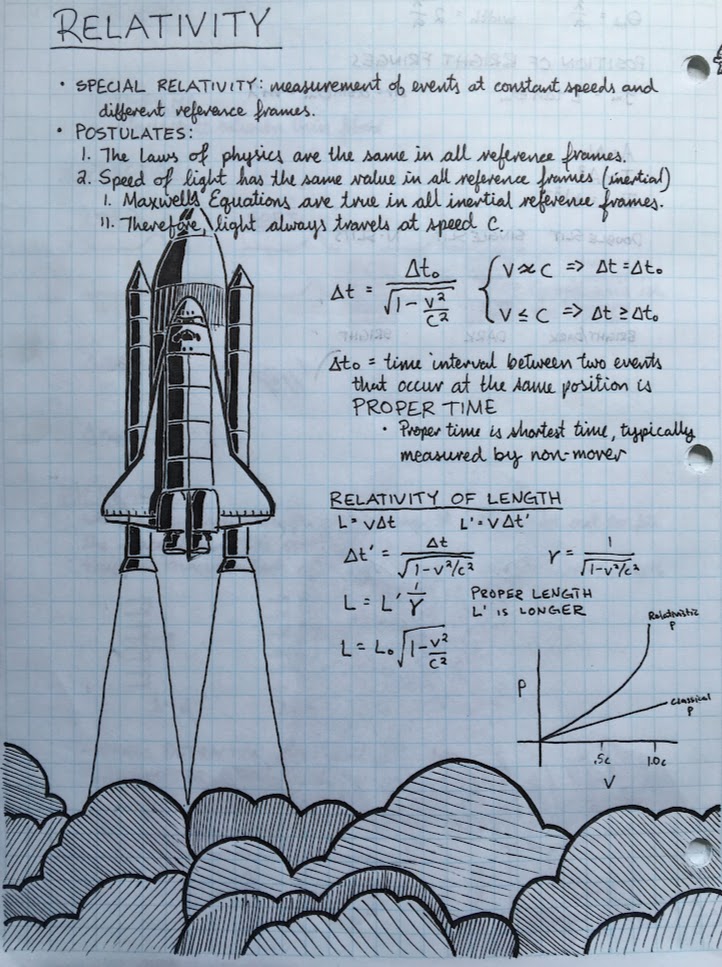 RELATIVITY
• SPECIAL RELATIVITY: measurement of events at constant speeds and
different reference frames.
• POSTULATES:
1. The laws of physics are the same in all reference frames.
2. Speed of light has the same value in all reference frames (inertial)
I. Maxwell's Equations are true in all inertial reference frames.
II. Therefore, light always travels at speed C.
Δt = Δt₀ / √(1 - v²/c²) { V ≉ C => Δt = Δt₀
V ≤ C => Δt ≥ Δt₀
Δt₀ = time interval between two events
that occur at the same position is
PROPER TIME
• Proper time is shortest time, typically
measured by non-mover
RELATIVITY OF LENGTH
L = VΔt L' = VΔt'
Δt' = Δt / √(1 - v²/c²) γ = 1 / √(1 - v²/c²)
L = L' 1/γ PROPER LENGTH
L' IS LONGER
L = L₀ √(1 - v²/c²)
Relativistic
P
P
Classical
P
.5c 1.0c
V